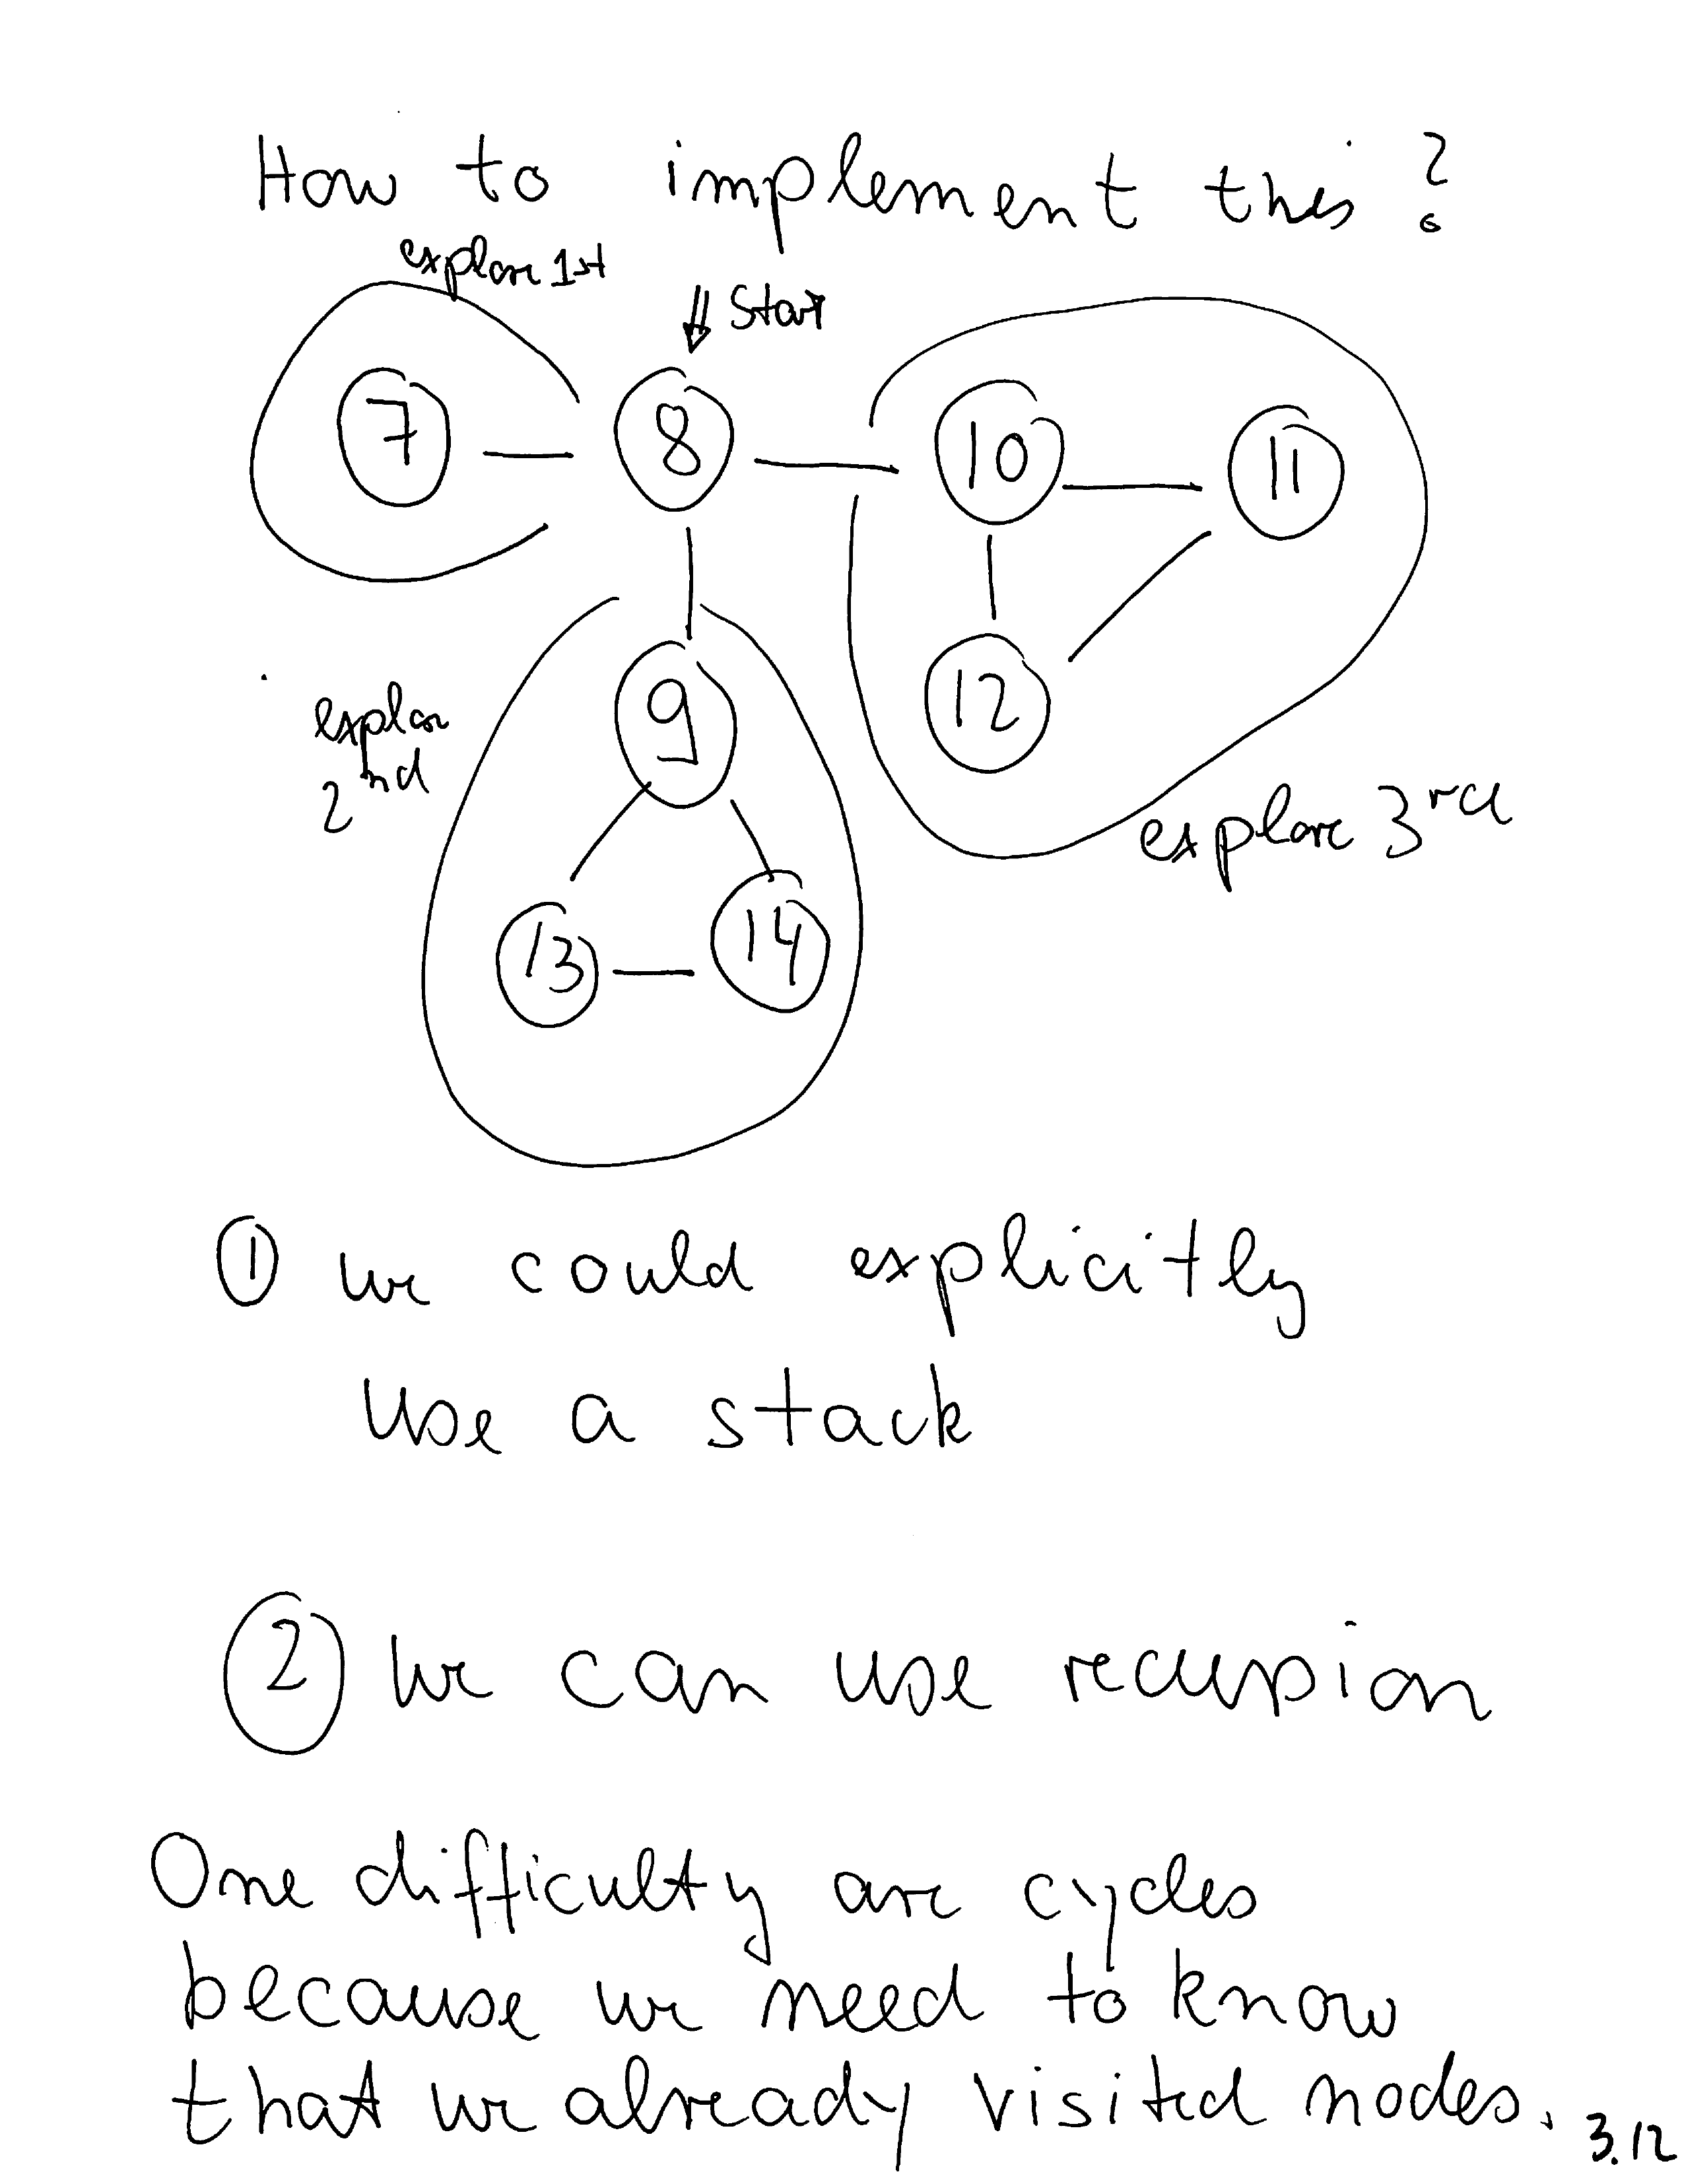 How to implement this?
explore 1st
Start
7 8 10 11
9 12
explore
2nd
explore 3rd
13 14
① we could explicitly
use a stack
② we can use recursion
One difficulty are cycles
because we need to know
that we already visited nodes.
3.12